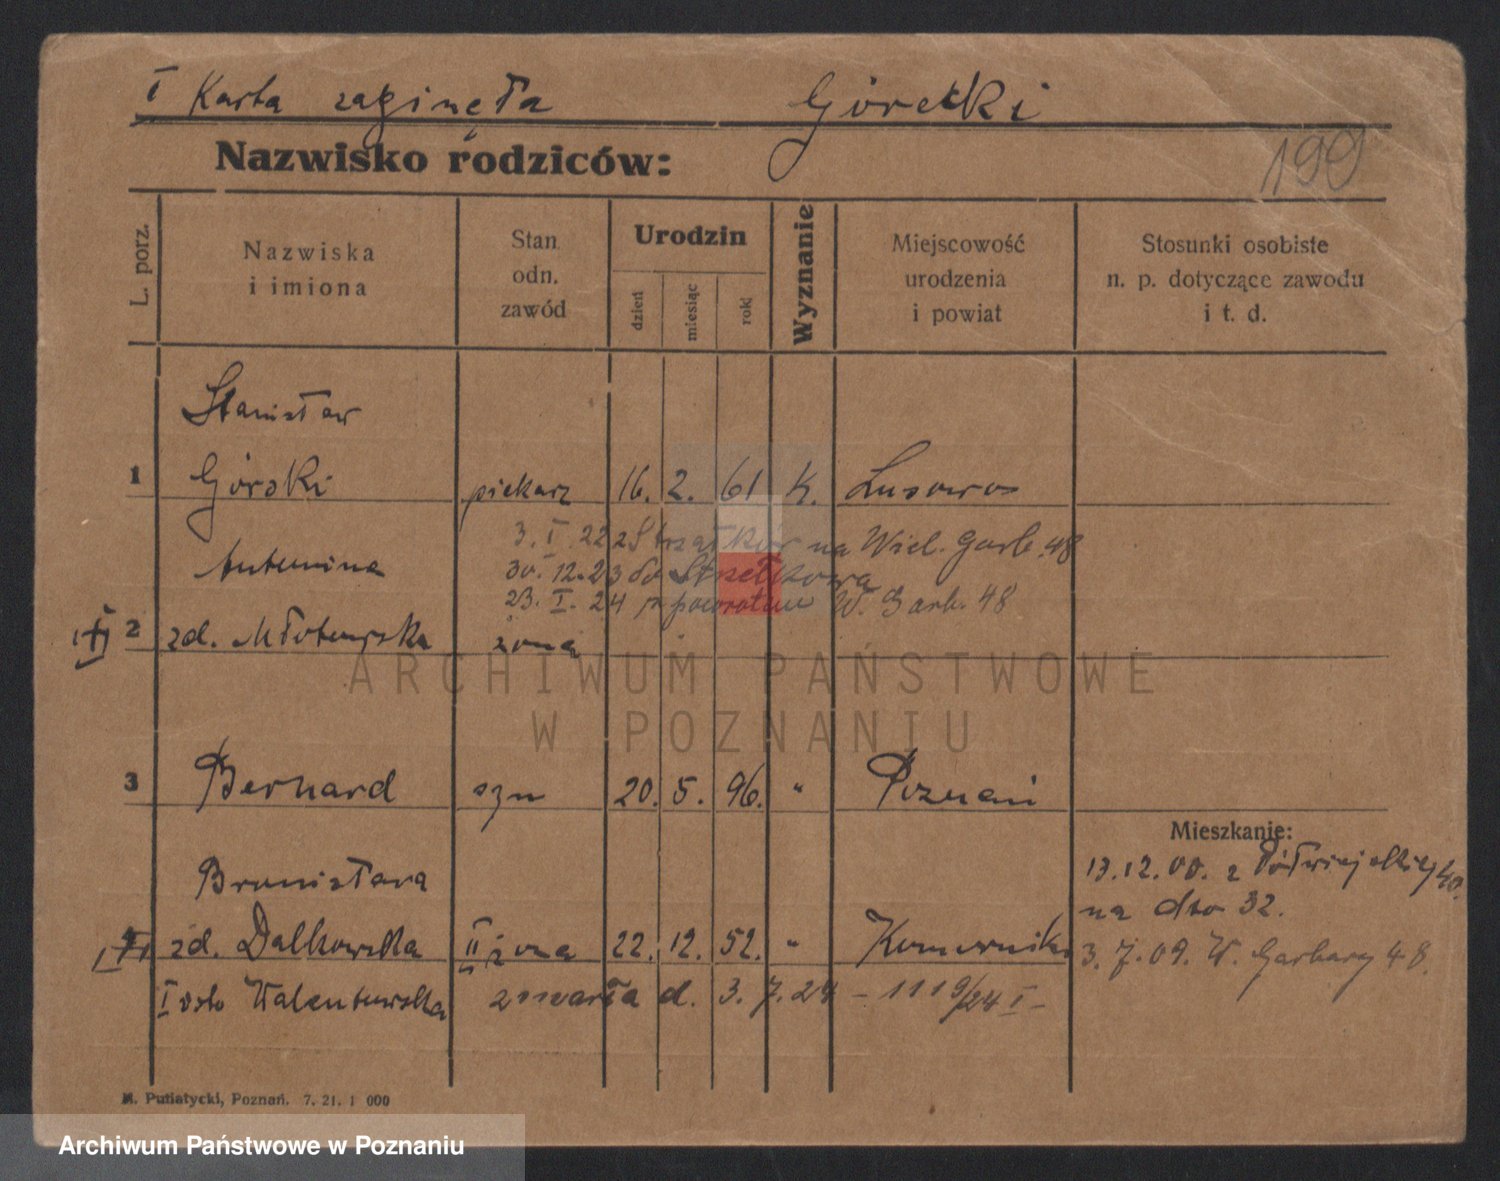 I Karta zaginęła Górski
Nazwisko rodziców:
199
L. porz.
Nazwiska
i imiona
Stan
odn.
zawód
Urodzin
dzień
miesiąc
rok
Wyznanie
Miejscowość
urodzenia
i powiat
Stosunki osobiste
n. p. dotyczące zawodu
i t. d.
Stanisław
1 Górski piekarz 16. 2. 61 K. Lusowo
3. I. 22 z Strzałków na Wiel. Garb. 48
Antonina
30. 12. 23 do Strzełkowa
23. I. 24 z powrotem W. Garb. 48
2 zd. Młotowska żona
ARCHIWUM PAŃSTWOWE
W POZNANIU
3 Bernard syn 20. 5. 96. " Poznań
Mieszkanie:
13.12.00. z Półwiejskiej
na dto 32.
Bronisława
4 zd. Dalkowska II żona 22. 12. 52. " Komorniki
3. 7. 09. W. Garbary 48.
I oto Walentowska zmarła d. 3. 7. 24 - 1119/24 I -
M. Putiatycki, Poznań. 7. 21. 1 000
Archiwum Państwowe w Poznaniu